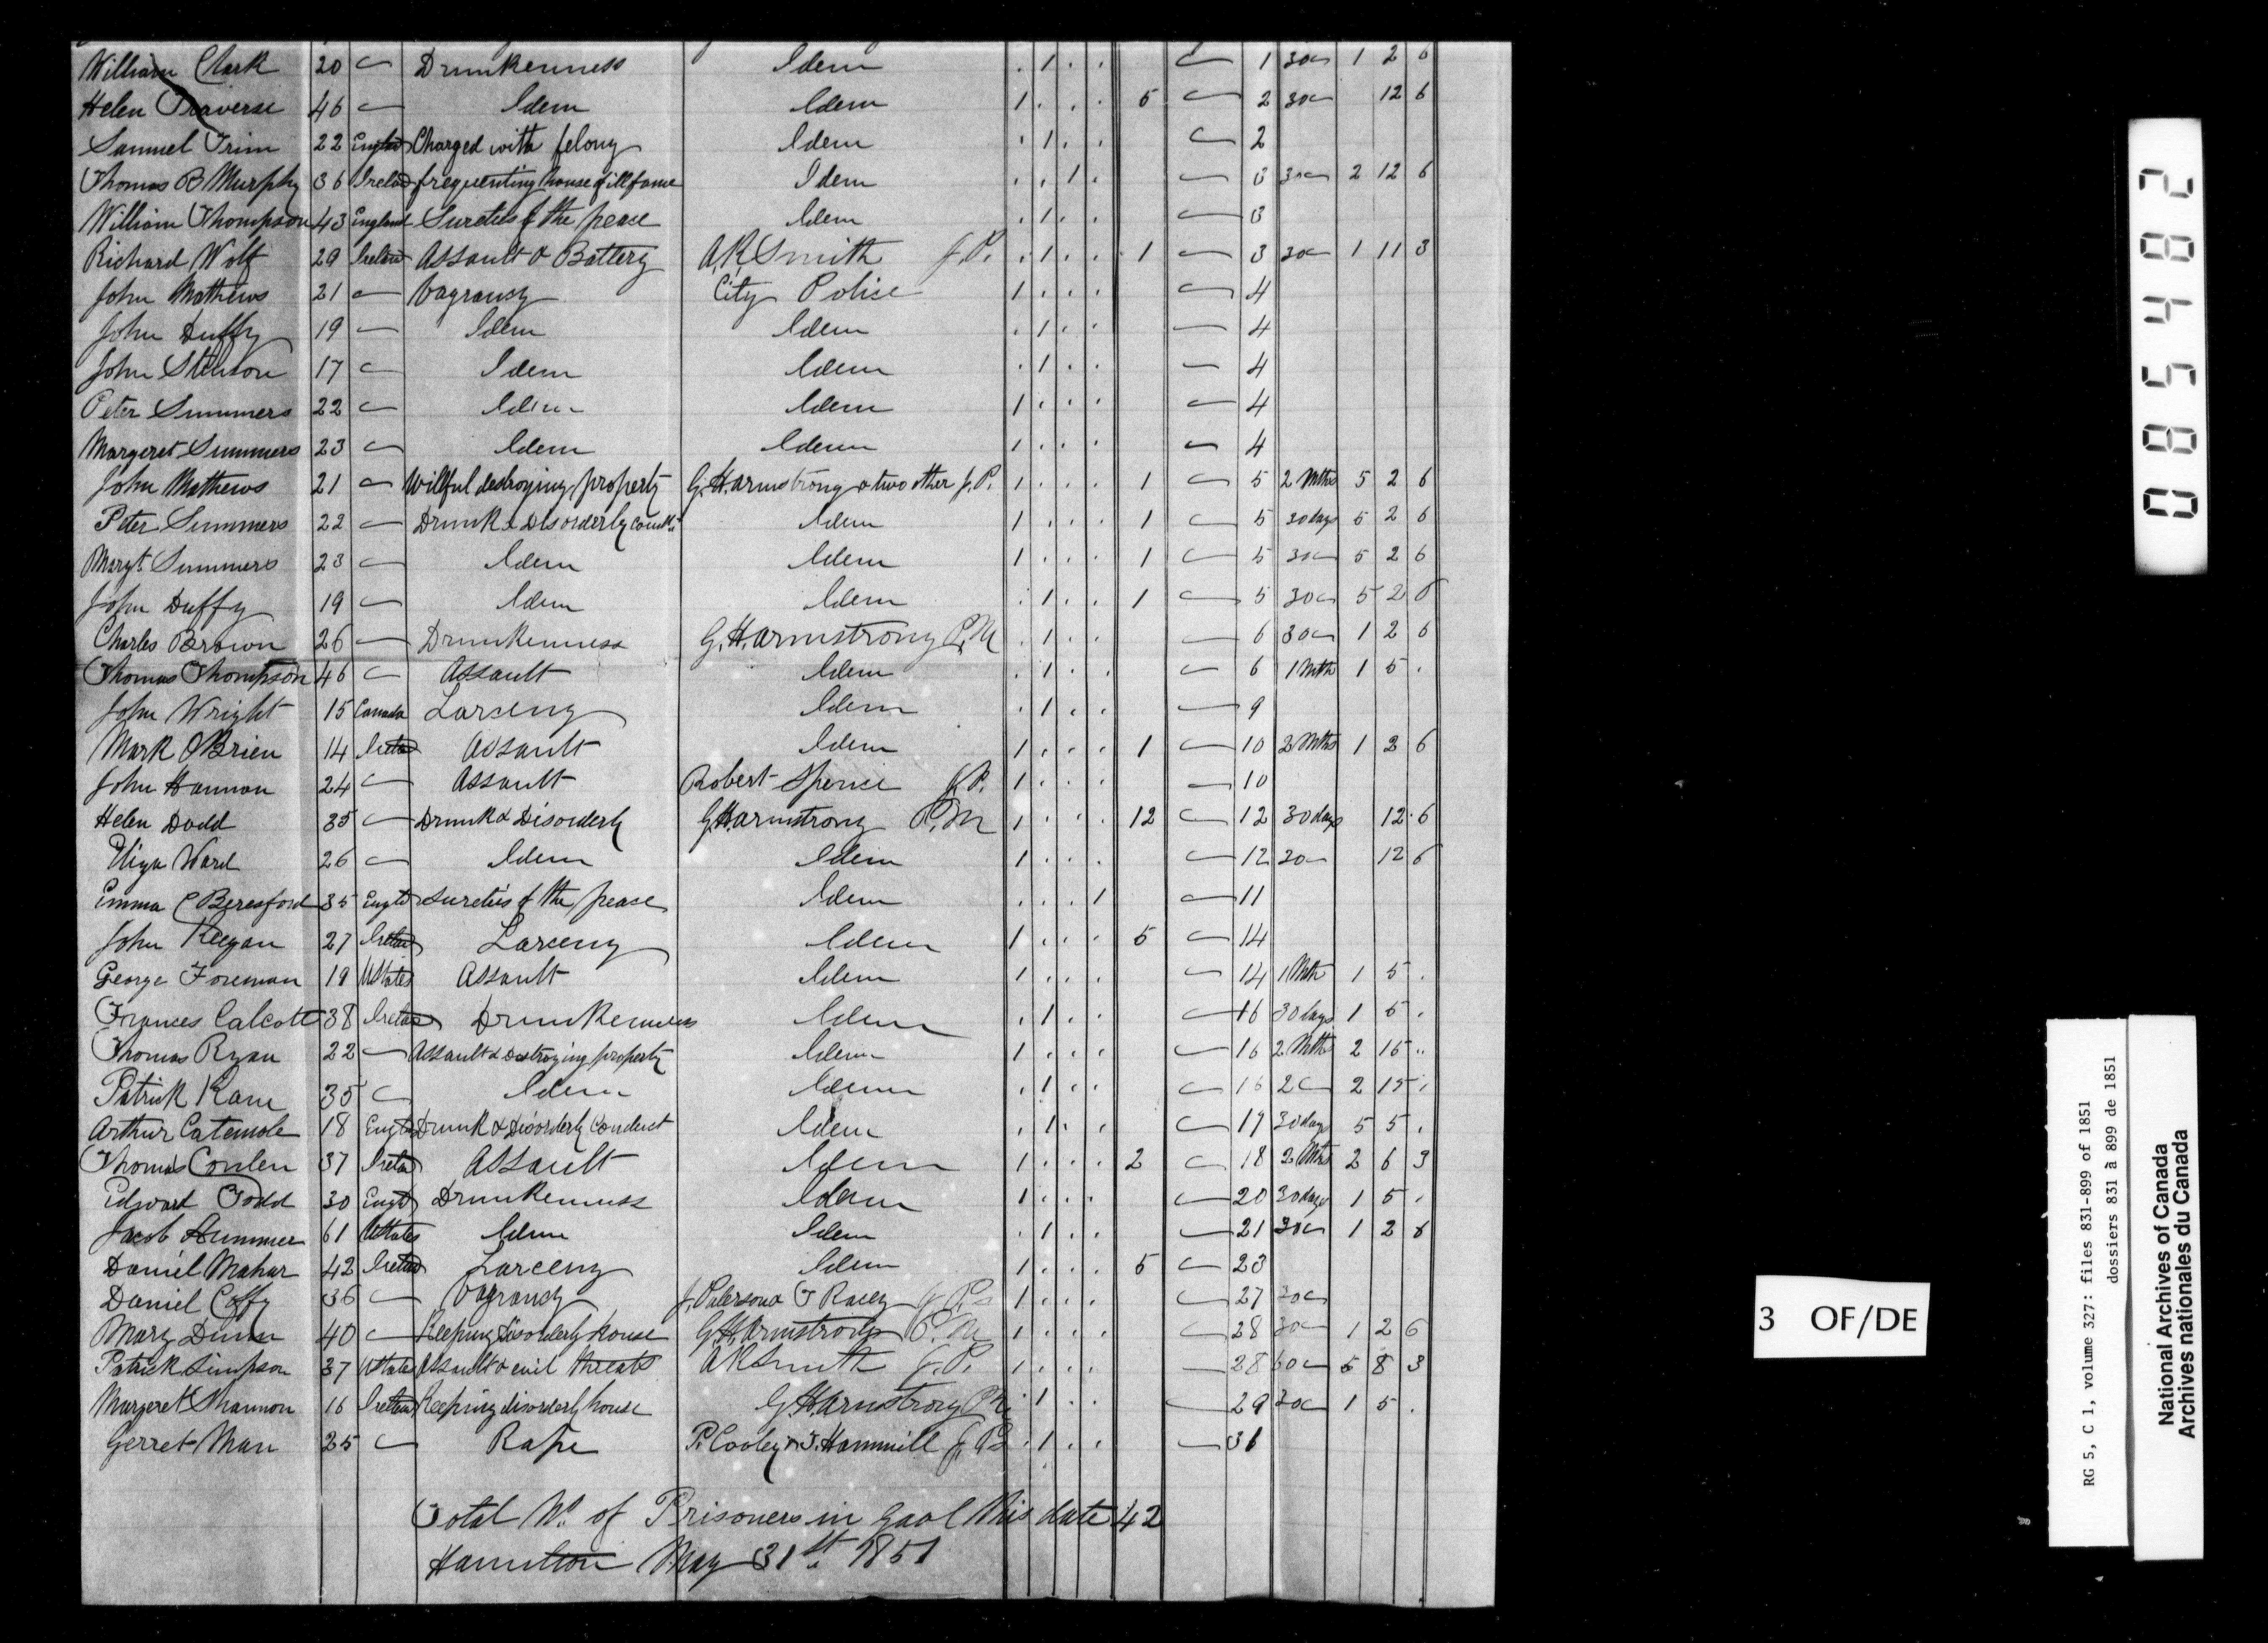 William Clark 20 Drunkenness Idem . 1 . . 1 30 1 2 6
Helen Traverse 46 Idem Idem 1 . . . 5 2 30 12 6
Samuel Trim 22 England Charged with felony Idem . 1 . . 2
Thomas B Murphy 36 Ireland frequenting house of ill fame Idem . . 1 . 3 30 2 12 6
William Thompson 43 England Sureties of the peace Idem . 1 . . 3
Richard Wolf 29 Ireland Assault & Battery A.R. Smith J.P. . 1 . . 1 3 30 1 11 3
John Mathews 21 Vagrancy City Police 1 . . . 4
John Duffy 19 Idem Idem . 1 . . 4
John 17 Idem Idem . 1 . . 4
Peter Summers 22 Idem Idem 1 . . . 4
Margeret Summers 23 Idem Idem 1 . . . 4
John Mathews 21 Willful destroying property G.H. Armstrong & two other J.P. 1 . . . 1 5 2 Mths 5 2 6
Peter Summers 22 Drunk & Disorderly Idem 1 . . . 1 5 30 days 5 2 6
Margt Summers 23 Idem Idem 1 . . . 1 5 30 5 2 6
John Duffy 19 Idem Idem . 1 . . 1 5 30 5 2 6
Charles Brown 26 Drunkenness G.H. Armstrong P.M . 1 . . 6 30 1 2 6
Thomas Thompson 46 Assault Idem . 1 . . 6 1 Mth 1 5 .
John Wright 15 Canada Larceny Idem . 1 . . 9
Mark OBrien 14 Ireland Assault Idem 1 . . . 1 10 2 Mths 1 2 6
John Hannon 24 Assault Robert Spence J.P. 1 . . . 10
Helen Dodd 35 Drunk & Disorderly G.H. Armstrong P.M 1 . . . 12 12 30 days 12 6
Eliza Ward 26 Idem Idem 1 . . . 12 30 12 6
Emma C Beresford 35 Engld Sureties of the peace Idem . . . 1 11
John Keegan 27 Ireland Larceny Idem 1 . . . 5 14
George Foreman 19 UStates Assault Idem 1 . . . 14 1 Mth 1 5 .
Frances Calcott 38 Ireland Drunkenness Idem . 1 . . 16 30 days 1 5 .
Thomas Ryan 22 Assault & Destroying property Idem 1 . . . 16 2 Mths 2 15 ..
Patrick Kane 35 Idem Idem . 1 . . 16 2 2 15 .
Arthur Catemole 18 England Drunk & Disorderly Conduct Idem . 1 . . 19 30 days 5 5 .
Thomas Conlen 37 Ireland Assault Idem 1 . . . 2 18 2 Mths 2 6 3
Edward Todd 30 Engd Drunkenness Idem 1 . . . 20 30 days 1 5 .
Jacob Hummer 61 UStates Idem Idem . 1 . . 21 30 1 2 6
Daniel Mahar 42 Ireland Larceny Idem 1 . . . 5 23
Daniel Coffy 36 Vagrancy J. Paterson & T Racey J.Ps 1 . . . 27 30
Mary Dunn 40 Keeping disorderly house G.H. Armstrong P.M 1 . . . 28 30 1 2 6
Patrick Simpson 37 UStates Assault & evil threats A R Smith J.P. 1 . . . 28 60 5 8 3
Margeret Shannon 16 Ireland Keeping disorderly house G.H. Armstrong P.M . 1 . . 29 30 1 5 .
Gerret Man 25 Rape P. Cooley & J. Hammill J.Ps . 1 . . 31
Total No. of Prisoners in Gaol this date 42
Hamilton May 31st 1851
085482
3 OF/DE
RG 5, C 1, volume 327: files 831-899 of 1851
dossiers 831 à 899 de 1851
National Archives of Canada
Archives nationales du Canada